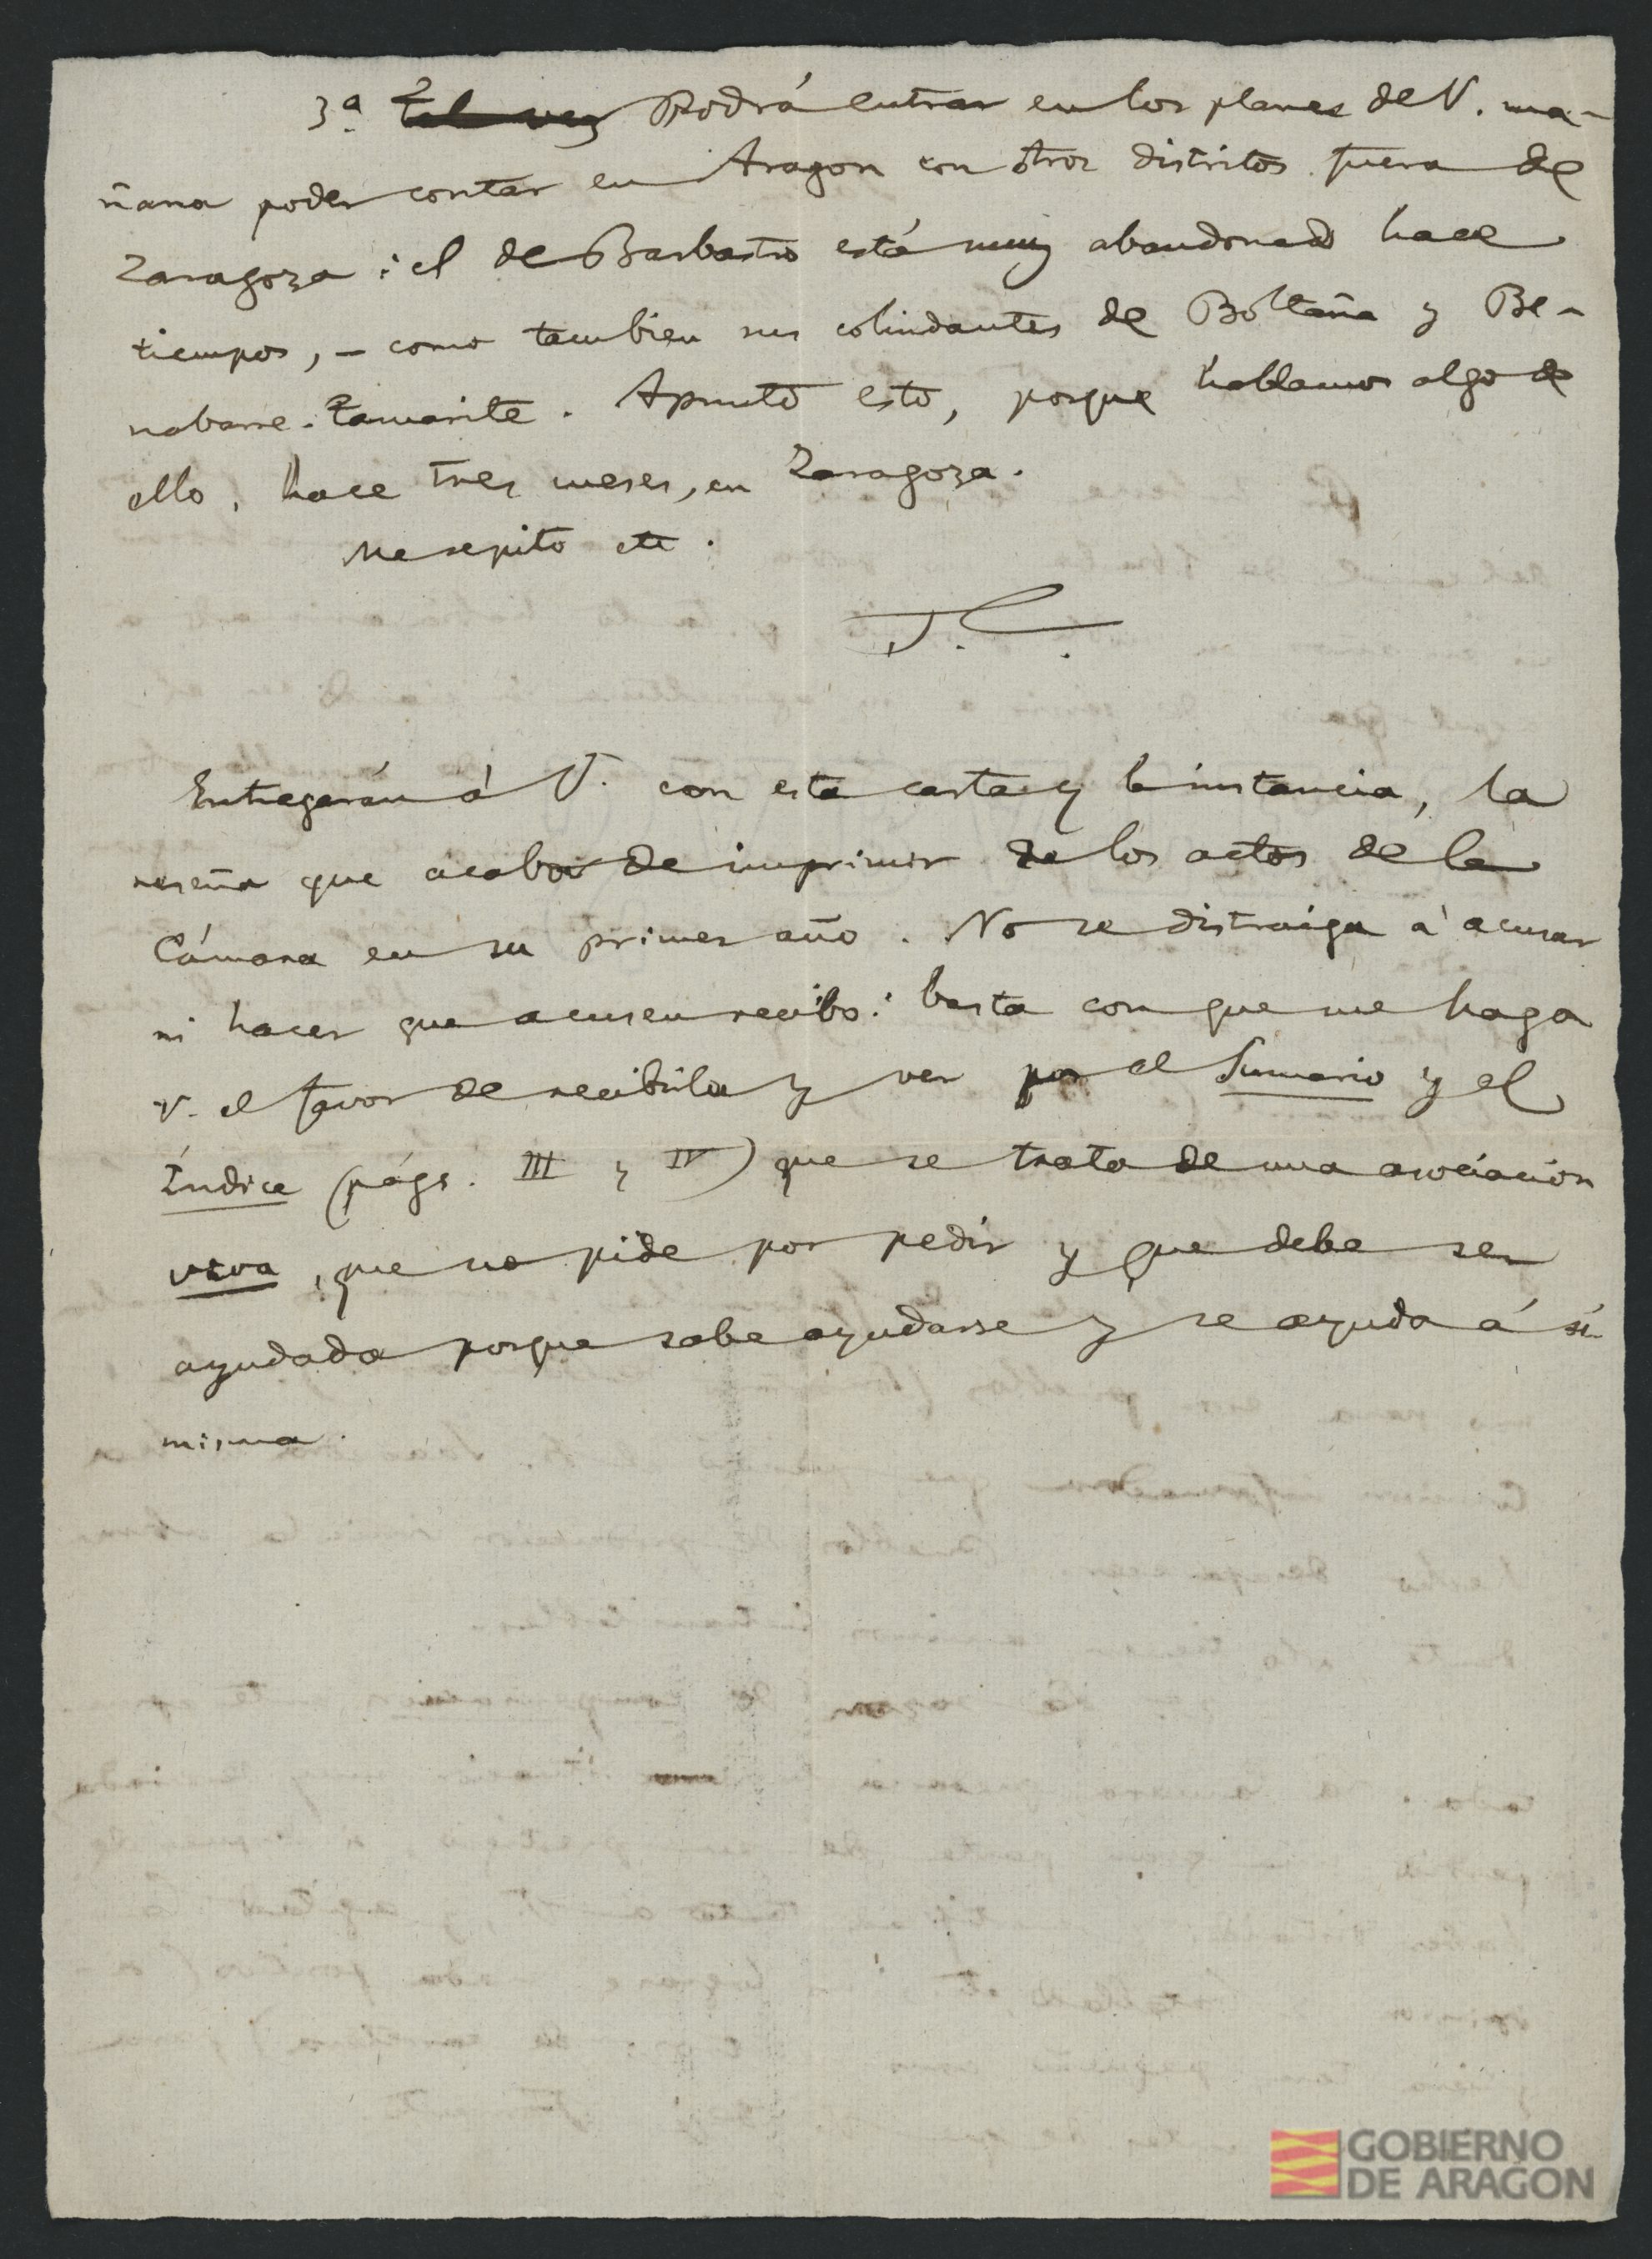 3ª tal vez Podrá entrar en los planes de V. ma-
ñana poder contar en Aragon con otros distritos fuera de
Zaragoza: el de Barbastro está muy abandonado hace
tiempos, – como tambien sus colindantes de Boltaña y Be-
nabarre-Tamarite. Apunto esto, porque hablamos algo de
ello, hace tres meses, en Zaragoza.
Me repito etc.
J. C.
Entregarán á V. con esta carta y la instancia, la
reseña que acabo de imprimir de los actos de la
Cámara en su primer año. No se distraiga á acusar
ni hacer que acusen recibo: basta con que me haga
V. el favor de recibirla y ver por el Sumario y el
Índice (págs. III y IV) que se trata de una asociación
viva, que no pide por pedir y que debe ser
ayudada porque sabe ayudarse y se ayuda á sí
misma.
GOBIERNO
DE ARAGON